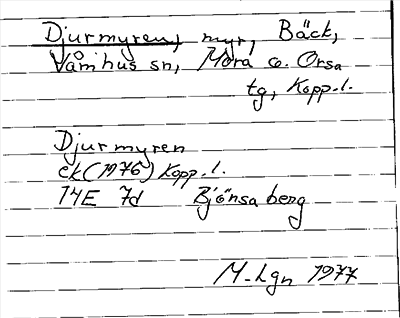 Djurmyren, myr, Bäck,
Våmhus sn, Mora o. Orsa
tg, Kopp.l.
Djurmyren
ek (1976) Kopp.l.
14E 7d Björnsa berg
M-Lgn 1977